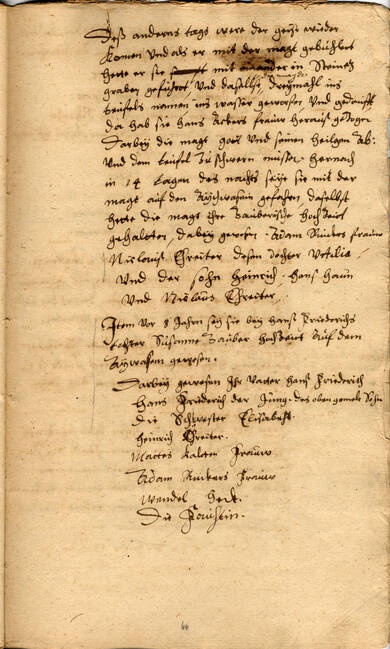 Deß anderns tags were der geist wieder
komen und als er mit der magt gebuhlert
hette er sie mit einander in Steinetz
graben geführt und daselbst dreymahl ins
teufels namen ins wasser geworfen und gedaufft
da hab sie Hans Ackers frauw herauß gezogen
Darbey die magt gott und seinen heilgen ab
und dem teufel zu schweren müssen. Hernach
in 14 tagen des nachts seye sie mit der
magt auf den gefahren, daselbst
hette die magt ihre Zauberische hochzeit
gehalten, dabey gewesen. Adam frauw
Niclauß Greiter dessen dochter Ottilia
und der sohn Heinrich. Hans Haun
und Niclaus Greiter.
Item vor 8 Jahrn sey sie bey Hans Friederichs
dochter Susanne Zauber hochzeit auf dem
gewesen.
Darbey gewesen Ihr Vatter Hans Friederich
Hans Friederich der Jung. des oben gemelt Sohn
die Schwester Elisabeth.
Heinrich Greiter.
Mattes Kalten Frauw
Adam Frauw
Wendel Heck.
Die